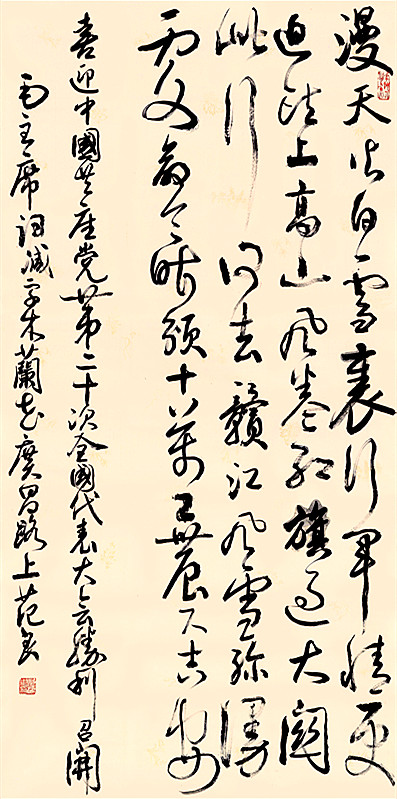 漫天皆白雪裏行軍情更
迫頭上高山風卷紅旗過大關
此行何去贛江風雪弥漫
處命令昨頒十万工農下吉安
喜迎中國共產党第二十次全國代表大会勝利召開
毛主席詞減字木蘭花廣昌路上范